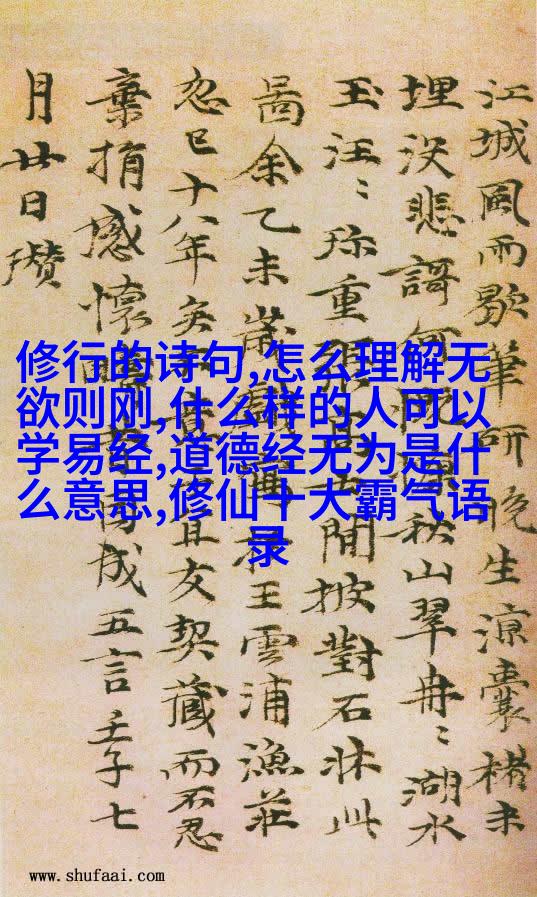 江城風雨歇筆研晚生涼囊楮未
埋没悲謌何秋山翠冉〻湖水
玉汪〻珎重張士閒披對石牀此
啚余乙未歲王雲浦漁莊
忽已十八年矣友契藏而不忍
棄捐感懷成五言壬子七
月廿日瓚
修行的诗句,怎么理解无
欲则刚,什么样的人可以
学易经,道德经无为是什
么意思,修仙十大霸气语
录
www.shufaai.com